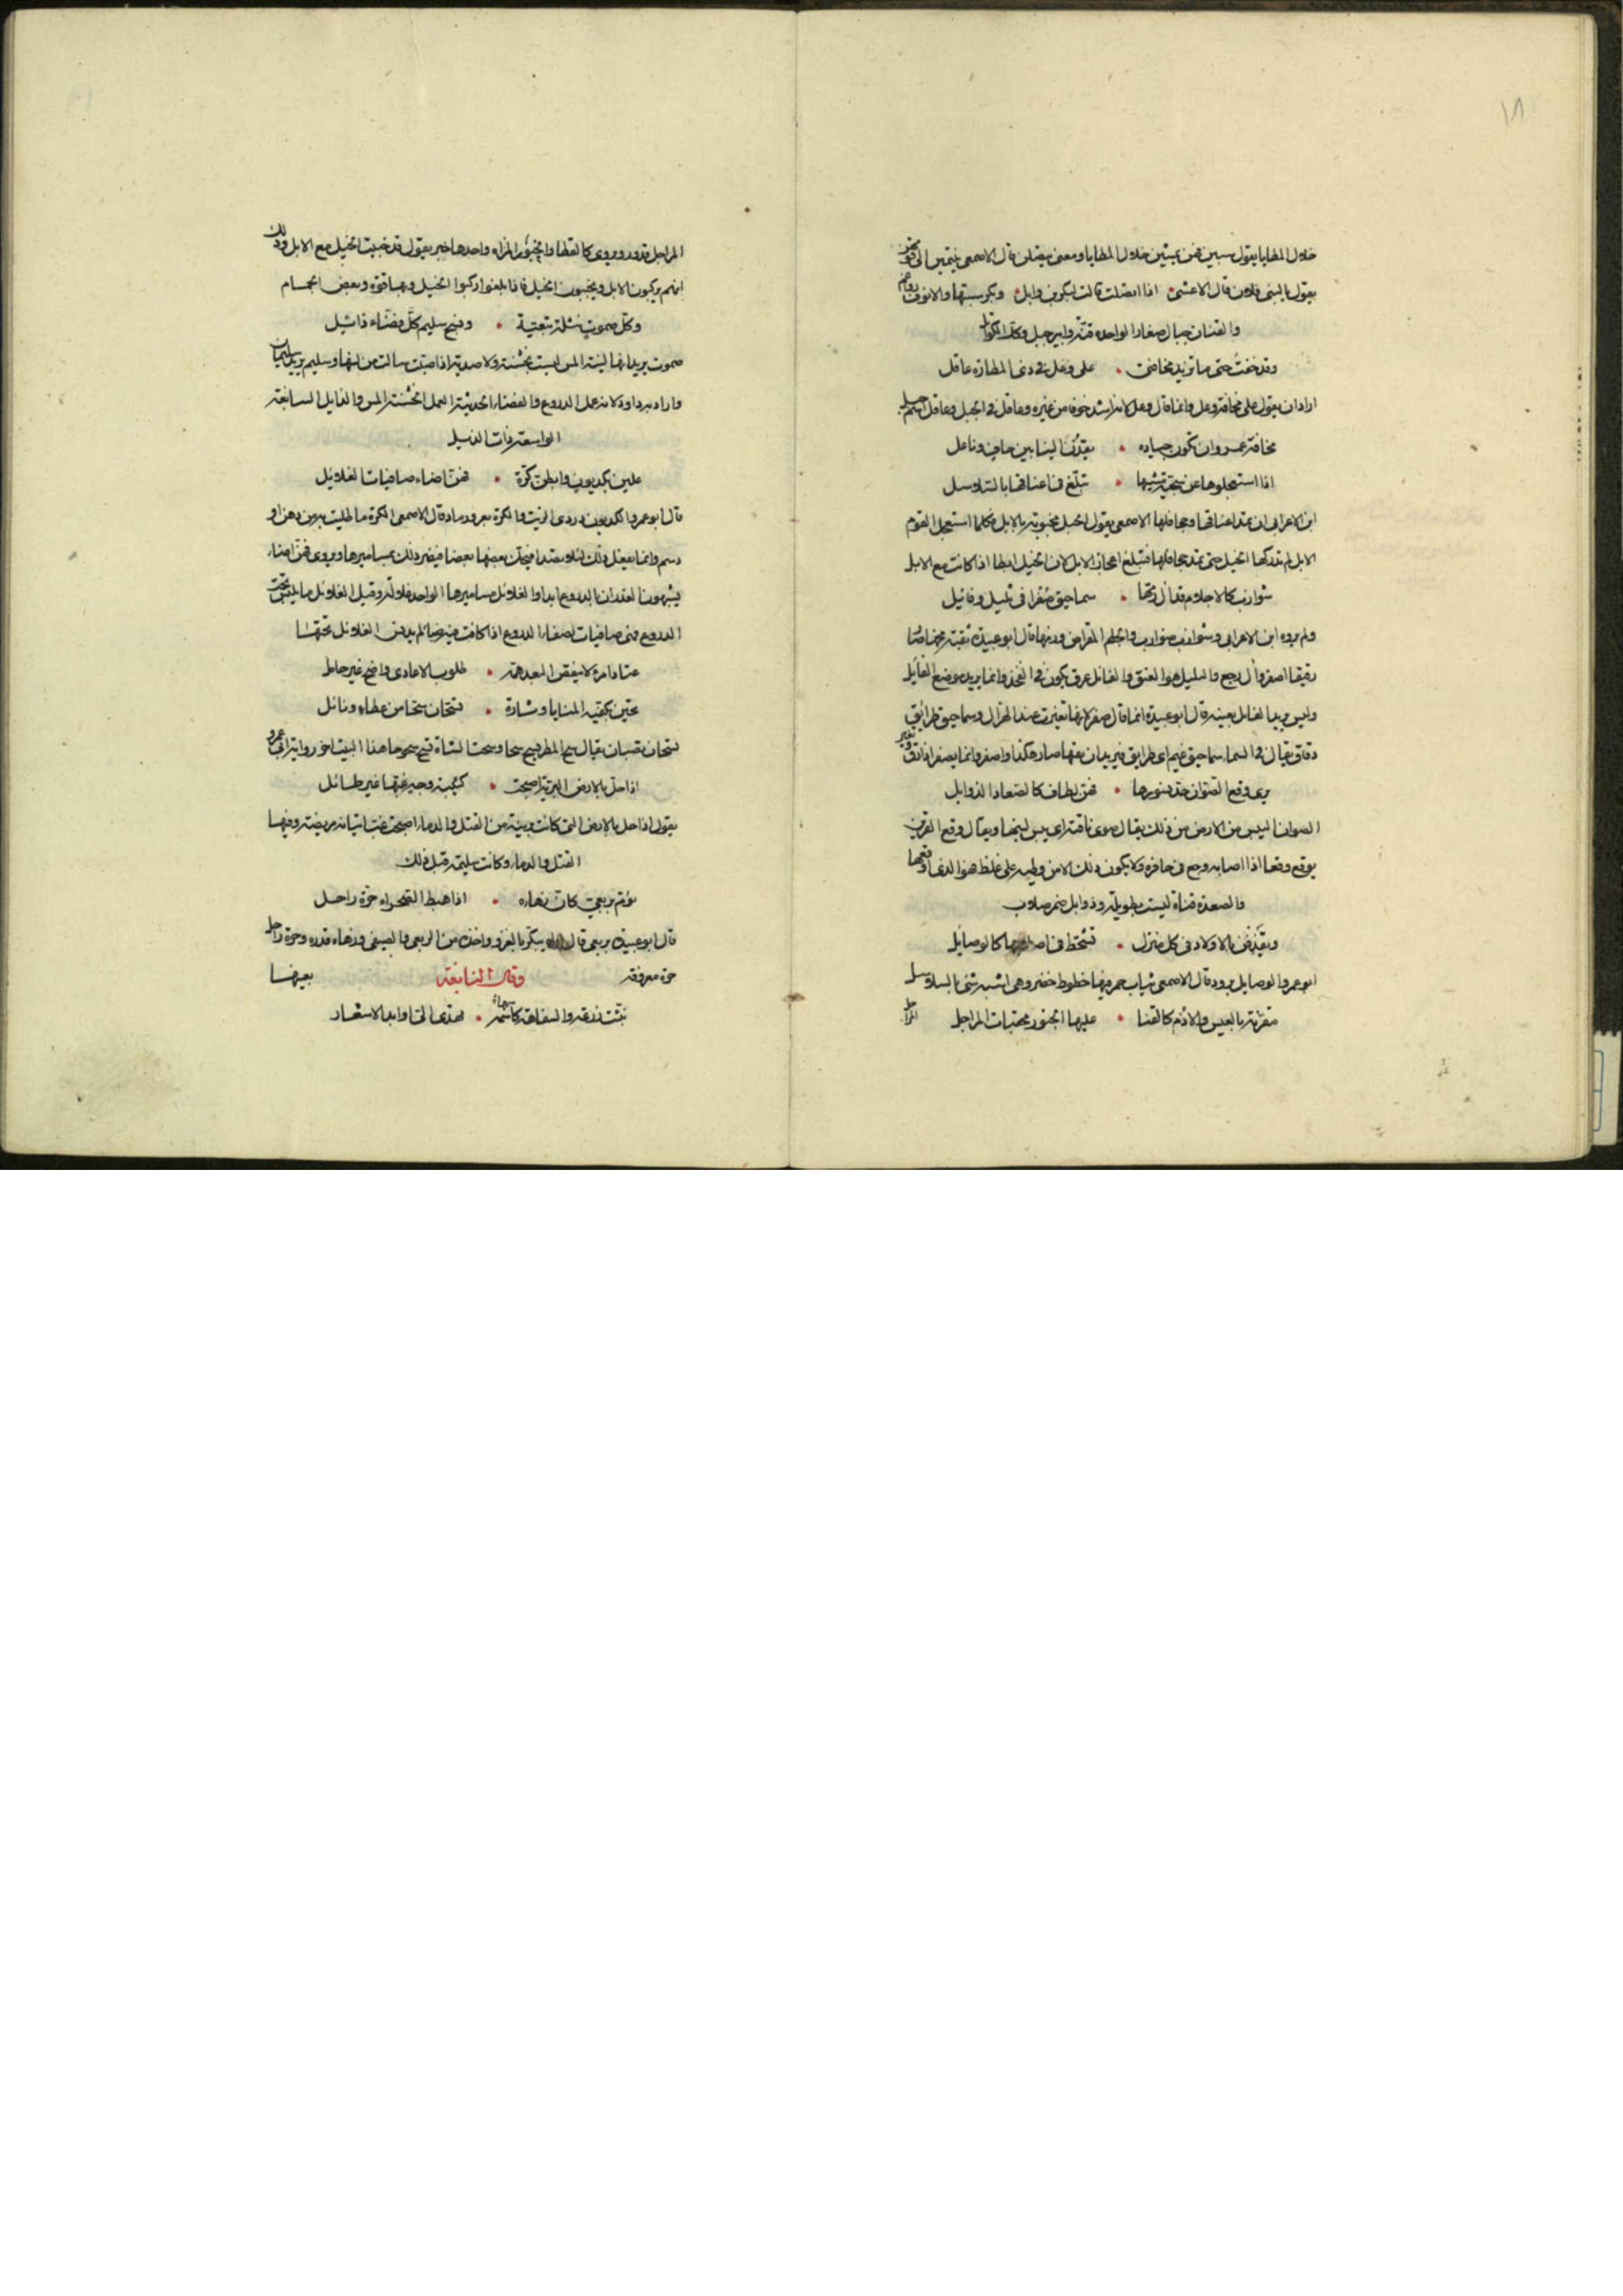 ١٨
خلال المطايا يقول سبين فهن يبتين خلال المطايا ومعنى يتصلن قال الاصمعى ينتمين الى
يقول يا لبنى فلان قال الاعشى اذا اتصلت قالت لبكر بن وائل وبكر سبتها والانوف رواغم
والقنان جبال صغار الواحدة قنة وابير جبل وكذا الكواثل
وقد خفت حتى ما تزيد مخافتى • على وعل فى ذى المطارة عاقل
اراد ان يقول على مخافة وعل وانما قال وعل كانه اشد خوفا من غيره وعاقل فى الجبل وعاقل
مخافة عمرو ان تكون جياده • يقدن الينا بين حاف وناعل
اذا استعجلوها عن سجية مشيها • تبلغ فى اعناقها بالتلاسل
ابن الاعرابى ان تمد اعناقها وجحافلها الاصمعى يقول الخيل مجنوبة بالابل فكلما استعجل القوم
الابل لم تدركها الخيل حتى تمد جحافلها فتبلغ اعجاز الابل لان الخيل ابطا اذا كانت مع الابل
شوازب كالاجلام قد آل رمها • سماحيق صفرا فى تليل وفائل
ولم يروه ابن الاعرابى وشوازب ضوازب والجلم المقراض ودنها قال ابو عبيدة
رقيقا اصفر وآل رجع والتليل هو العنق والفائل عرق يكون فى الفخذ وانما يريد موضع الفائل
وليس يريد الفائل بعينه قال ابو عبيدة انما قال صفر لانها تغيرت عند الهزال وسماحيق طرائق
دقاق يقال فى السماء سماحيق غيم اى طرايق فيريد ان مخها صار هكذا واصفر وانما يصفر اذا رق
برى وقع الصوان حد نسورها • فهن لطاف كالصعاد الذوابل
الصوان اليبس من الارض من ذلك يقال صوى ناقته اى يبس لبنها ويقال وقع الفرس
يوقع وقعا اذا اصابه وجع فى حافره ولا يكون ذلك الا من وطيه على غلظ هو الذى اوقعها
والصعدة قناة ليست بطويلة وذوابل ضمر صلاب
ويقذفن بالاولاد فى كل منزل • تشحط فى اسلائها كالوصائل
ابو عمرو الوصايل برود قال الاصمعى ثياب حمر فيها خطوط خضر وهى اشبه شى بالسلا
مقرنة بالعيس والادم كالقنا • عليها الخبور محقبات المراجل
المراجل
المراجل قدور ويروى كالقطا والخبور المزاد واحدها خبر يقول قد جنبت الخيل مع الابل وذلك
انهم يركبون الابل ويجنبون الخيل فاذا بلغوا ركبوا الخيل وبها قوة وبعض الجمام
وكل صموت نثلة تبعية • ونسج سليم كل قضاء ذائل
صموت يريد انها لينة المس ليست بخشنة ولا صدية اذا صبت سالت من لينها وسليم يريد سليمان
واراد به داود لانه عمل الدروع والقضاء الحديثة العمل الخشنة المس والذايل السابغة
الواسعة ذات الذيل
علين بكديون وابطن كرة • فهن اضاء صافيات الغلائل
قال ابو عمرو الكديون دردى الزيت والكرة بعر ورماد قال الاصمعى الكرة ما طليت به من دهن او
دسم وانما يفعل ذلك لئلا يصدا فيحك بعضها بعضا فيضر ذلك بمساميرها ويروى فهن اضاء
يشبهون الغدران بالدروع ابدا والغلائل مساميرها الواحد غلالة وقيل الغلائل ما يلبس تحت
الدروع فهى صافيات لصفاء الدروع اذا كانت فيه وما لم يدهن الغلائل تحتها
عتاد امرئ لا ينقض البعد همه • طلوب الاعادى واضح غير خامل
تحين بكفيه المنايا وتارة • تسحان سحا من عطاء ونائل
تسحان تصبان يقال سح المطر يسح سحا وسحت الشاة تسح سحوحا هذا البيت اخر رواية ابى عمرو
اذا حل بالارض البرية اصبحت • كئيبة وجه غبها غير طائل
يقول اذا حل بالارض التى كانت برية من القتل والدماء اصبحت غب اتيانه مريضة وفيها
القتل والدماء وكانت سليمة قبل ذلك
يؤم بربعى كان زهاءه • اذا هبط الصحراء حرة راجل
قال ابو عبيدة بربعى قال يبكر بالغزو واخذه من الربعى والصيفى وزهاءه قدره وحرة راجل
حرة معروفة وقال النابغة بعينها
نبئت زرعة والسفاهة كاسمها • يهدى الى اوابد الاشعار